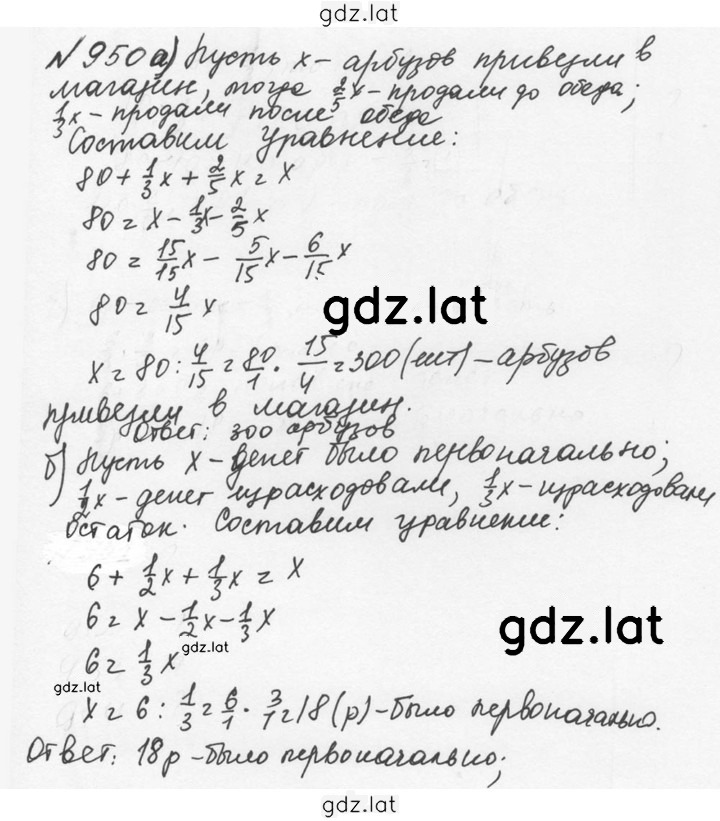 gdz.lat
№950 а) Пусть x - арбузов привезли в
магазин, тогда 2/5x - продали до обеда;
1/3x - продали после обеда
Составим уравнение:
80 + 1/3x + 2/5x = x
80 = x - 1/3x - 2/5x
80 = 15/15x - 5/15x - 6/15x
80 = 4/15 x
gdz.lat
x = 80 : 4/15 = 80/1 · 15/4 = 300 (шт) - арбузов
привезли в магазин.
Ответ: 300 арбузов
б) Пусть x - денег было первоначально;
1/2x - денег израсходовали, 1/3x - израсходовали
остаток. Составим уравнение:
6 + 1/2x + 1/3x = x
6 = x - 1/2x - 1/3x
gdz.lat
gdz.lat
6 = 1/3 x
gdz.lat
x = 6 : 1/3 = 6/1 · 3/1 = 18 (р) - было первоначально.
Ответ: 18р - было первоначально;
gdz.lat